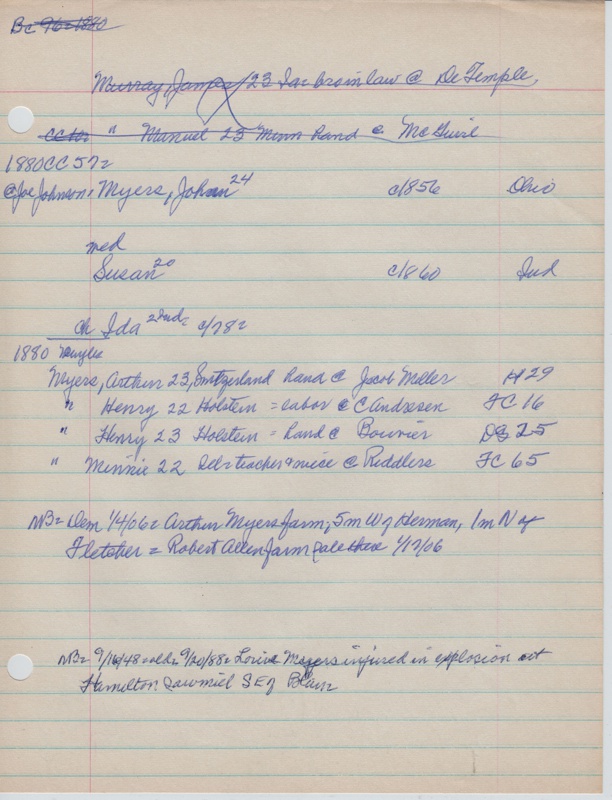 Bc 96=1880
Murray, James, 23 Ia= broinlaw @ DeTemple,
" Manuel 25 Minn hand @ McGuire
1880CC572
@Joe Johnson, Myers, John 24 c/1856 Ohio
med
Susan 20 c/1860 Ind
ch Ida 2 Ind, c/782
1880 Singles
Myers, Arthur 23, Switzerland hand @ Jacob Moller H29
" Henry 22 Holstein = labor @ C Andresen FC 16
" Henry 23 Holstein = hand @ Bouvier DS 25
" Minnie 22 Del= teacher & niece @ Riddlers FC 65
NB= Dem 1/4/06= Arthur Myers farm, 5 m W of Herman, 1 m N of
Fletcher = Robert Allen farm sale there 1/12/06
NB= 9/16/48 = old, 9/20/88= Louis Mayers injured in explosion at
Hamilton sawmill SE of Blair